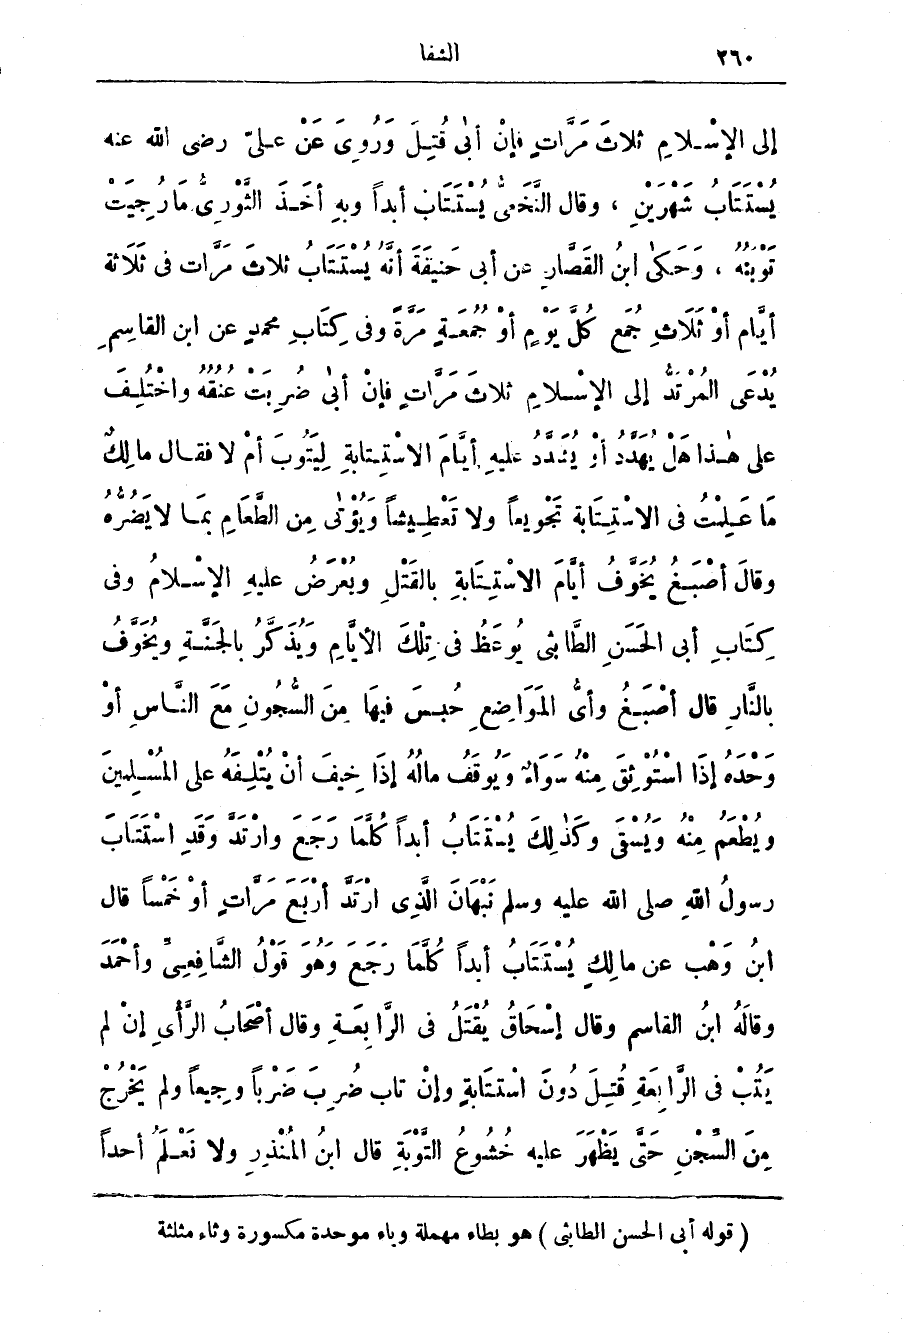 ٢٦٠ الشفا
إلى الإِسْلامِ ثلاثَ مَرَّاتٍ فإنْ أَبَى قُتِلَ وَرُوِىَ عَنْ علىّ رضى الله عنه
يُسْتَتَابُ شَهْرَيْنِ ، وقال النَّخَعىُّ يُسْتَتَاب أبداً وبه أخَذَ الثَّوْرِىُّ مَا رُجِيَتْ
تَوْبَتُهُ ، وَحَكىٰ ابنُ القَصَّارِ عن أبى حَنِيفَةَ أنَّهُ يُسْتَتَابُ ثلاثَ مَرَّات فى ثَلَاثة
أيَّام أوْ ثَلَاثِ جُمَع كُلَّ يَوْمٍ أوْ جُمُعَةٍ مَرَّةً وفى كِتَابِ محمدٍ عن ابن القاسِمِ
يُدْعَى المُرْتَدُّ إلى الإِسْلامِ ثلاثَ مَرَّاتٍ فإنْ أبىٰ ضُرِبَتْ عُنُقُهُ واخْتُلِفَ
على هٰذا هَلْ يُهَدَّدُ أوْ يُشَدَّدُ عليهِ أيَّامَ الاسْتِتابةِ لِيَتُوبَ أمْ لا فقال مالِكٌ
مَا عَلِمْتُ فى الاسْتِتَابة تَجْوِيعاً ولا تَعْطِيشاً وَيُؤْتىٰ مِن الطَّعَامِ بمَا لا يَضُرُّهُ
وقالَ أصْبَغُ يُخَوَّفُ أيَّامَ الاسْتِتَابةِ بالقَتْلِ ويُعْرَضُ عليهِ الإِسْلامُ وفى
كِتَابِ أبى الحَسَنِ الطَّابثى يُوعَظُ فى تِلْكَ الأيَّامِ وَيُذَكَّرُ بالجَنَّةِ ويُخَوَّفُ
بالنَّارِ قال أصْبَغُ وأىُّ المَوَاضِعِ حُبِسَ فيهَا مِنَ السُّجُونِ مَعَ النَّاسِ أوْ
وَحْدَهُ إذَا اسْتُوْثِقَ مِنْهُ سَوَاءٌ وَيُوقَفُ مالُهُ إذَا خِيفَ أنْ يُتْلِفَهُ على المُسْلِمينَ
ويُطْعَمُ مِنْهُ وَيُسْقَى وكَذٰلِكَ يُسْتَتَابُ أبداً كُلَّمَا رَجَعَ وارْتَدَّ وَقَدِ اسْتَتَابَ
رسولُ اللهِ صلى الله عليه وسلم نَبْهَانَ الَّذِى ارْتَدَّ أرْبَعَ مَرَّاتٍ أوْ خَمْساً قال
ابنُ وَهْب عن مالِكٍ يُسْتَتَابُ أبداً كُلَّمَا رَجَعَ وَهُوَ قَوْلُ الشَّافِعِىِّ وأحْمَدَ
وقالَهُ ابنُ القاسم وقال إسْحَاقُ يُقْتَلُ فى الرَّابعَةِ وقال أصْحَابُ الرَّأْىِ إنْ لم
يَتُبْ فى الرَّابِعَةِ قُتِلَ دُونَ اسْتتَابةٍ وإنْ تاب ضُرِبَ ضَرْباً وجِيعاً ولم يَخْرُجْ
مِنَ السِّجْنِ حَتَّى يَظْهَرَ عليه خُشُوعُ التَّوْبَةِ قال ابنُ المُنْذِرِ ولا نَعْلَمُ أحداً
( قوله أبى الحسن الطابثى ) هو بطاء مهملة وباء موحدة مكسورة وثاء مثلثة